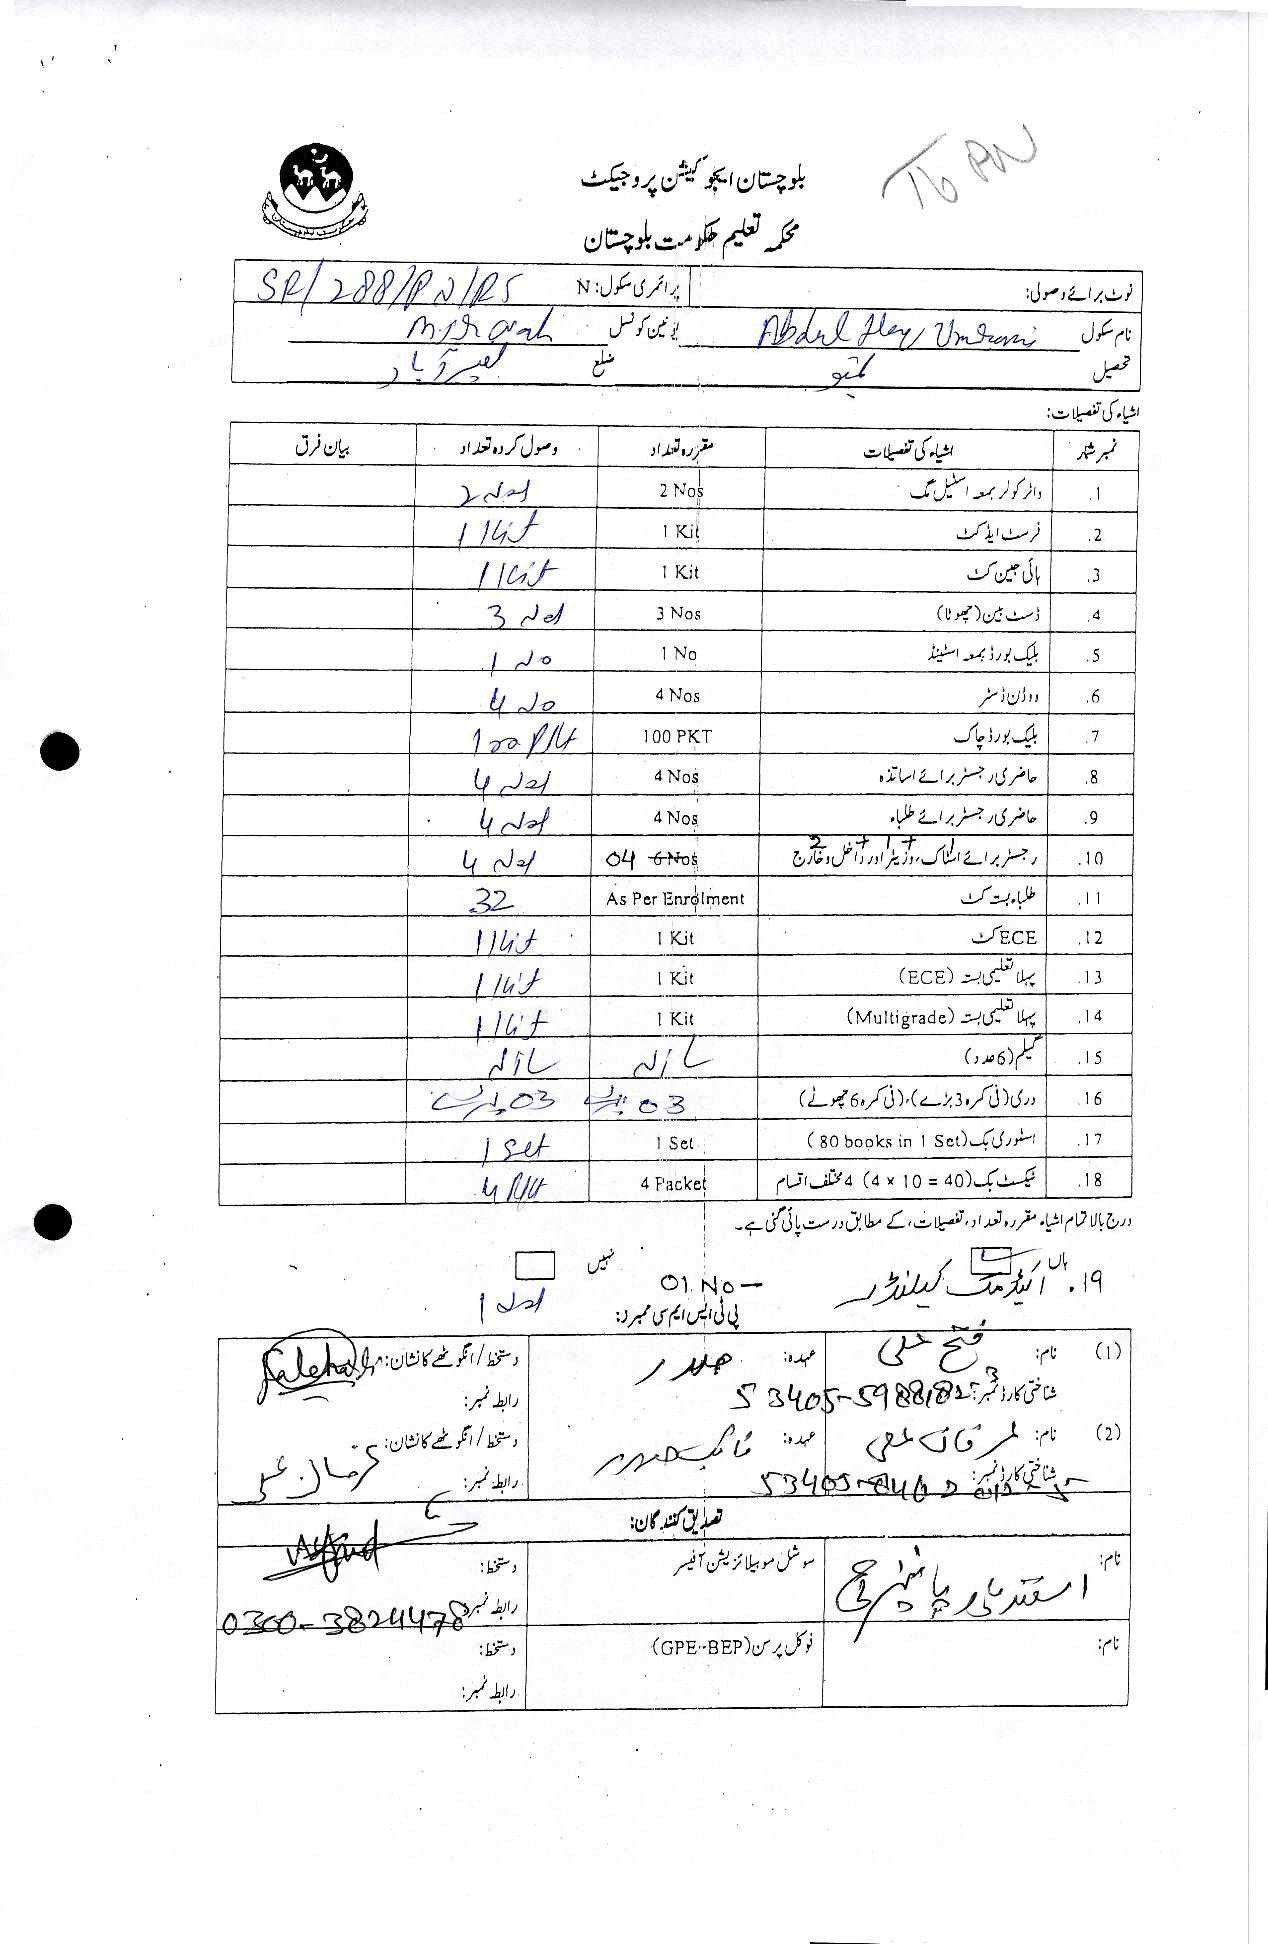 بلوچستان ایجوکیشن پروجیکٹ
محکمہ تعلیم حکومت بلوچستان
نوٹ برائے وصولی: پرائمری سکول: N SR/288/PN/RS
نام سکول Abdul Hay Umrani یونین کونسل
تحصیل تمبو ضلع نصیر آباد
اشیاء کی تفصیلات:
نمبر شمار اشیاء کی تفصیلات مقررہ تعداد وصول کردہ تعداد بیان فرق
1. واٹر کولر بمعہ اسٹیل مگ 2 Nos 2 Nos
2. فرسٹ ایڈ کٹ 1 Kit 1 Kit
3. ہائی جین کٹ 1 Kit 1 Kit
4. ڈسٹ بین (چھوٹا) 3 Nos 3 Nos
5. بلیک بورڈ بمعہ اسٹینڈ 1 No 1 No
6. ووڈن ڈسٹر 4 Nos 4 No
7. بلیک بورڈ چاک 100 PKT 100 Pkt
8. حاضری رجسٹر برائے اساتذہ 4 Nos 4 Nos
9. حاضری رجسٹر برائے طلباء 4 Nos 4 Nos
10. رجسٹر برائے اسٹاک، وزیٹر اور داخل و خارج 2+1+1 04 6 Nos 4 Nos
11. طلباء بستہ کٹ As Per Enrolment 32
12. ECE کٹ 1 Kit 1 Kit
13. پہلا تعلیمی بستہ (ECE) 1 Kit 1 Kit
14. پہلا تعلیمی بستہ (Multigrade) 1 Kit 1 Kit
15. گیلم (6 عدد) NIL NIL
16. دری (فی کمرہ 3 بڑے)، (فی کمرہ 6 چھوٹے) 03 بڑے 03 بڑے
17. اسٹوری بک (80 books in 1 Set) 1 Set 1 Set
18. ٹیکسٹ بک (4 x 10 = 40) 4 مختلف اقسام 4 Packet 4 Pkt
درج بالا تمام اشیاء مقررہ تعداد، تفصیلات، کے مطابق درست پائی گئی ہے۔
ہاں نہیں
19. اکیڈمک کیلنڈر 01 No 1 Nos
پی ٹی ایس ایم سی ممبرز:
(1) نام: فتح علی عہدہ: صدر دستخط/انگوٹھے کا نشان:
شناختی کارڈ نمبر: رابطہ نمبر:
(2) نام: عہدہ: دستخط/انگوٹھے کا نشان:
شناختی کارڈ نمبر: رابطہ نمبر:
تصدیق کنندگان:
نام: سوشل موبیلائزیشن آفیسر دستخط:
رابطہ نمبر: 0300-3824478
نام: فوکل پرسن (GPE-BEP) دستخط:
رابطہ نمبر: